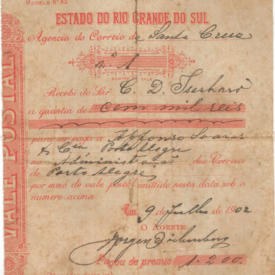 MODELO N° 82
ESTADO DO RIO GRANDE DO SUL
Agencia do Correio de Santa Cruz
N. 1
Recebi do Sr. C. D.
a quantia de cem mil reis
para ser pago a Affonso Soares
& Cia Porto Alegre
na Administração dos Correios
de Porto Alegre
por meio do vale postal emittido nesta data sob o
numero acima.
Em 9 de Julho de 1902
O AGENTE
Pagou de premio 1.200
VALE POSTAL